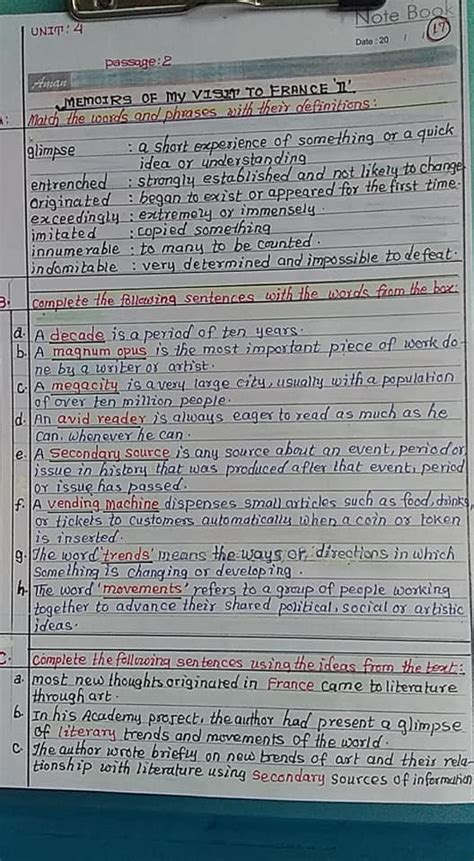 Note Book
UNIT: 4
17
Date: 20 / /
passage: 2
Aman
MEMOIRS OF MY VISIT TO FRANCE 'II'
A: Match the words and phrases with their definitions:
glimpse : a short experience of something or a quick
idea or understanding
entrenched : strongly established and not likely to change
originated : began to exist or appeared for the first time.
exceedingly : extremely or immensely.
imitated : copied something
innumerable : to many to be counted.
indomitable : very determined and impossible to defeat.
B. complete the following sentences with the words from the box:
a. A decade is a period of ten years.
b. A magnum opus is the most important piece of work do-
ne by a writer or artist.
c. A megacity is a very large city, usually with a population
of over ten million people.
d. An avid reader is always eager to read as much as he
can, whenever he can.
e. A Secondary source is any source about an event, period or
issue in history that was produced after that event, period
or issue has passed.
f. A vending machine dispenses small articles such as food, drinks,
or tickets to customers automatically when a coin or token
is inserted.
g. The word 'trends' means the ways or directions in which
something is changing or developing.
h. The word 'movements' refers to a group of people working
together to advance their shared political, social or artistic
ideas.
C. complete the following sentences using the ideas from the text:
a. most new thoughts originated in France came to literature
through art.
b. In his Academy project, the author had present a glimpse
of literary trends and movements of the world.
c. The author wrote briefly on new trends of art and their rela-
tionship with literature using secondary sources of information